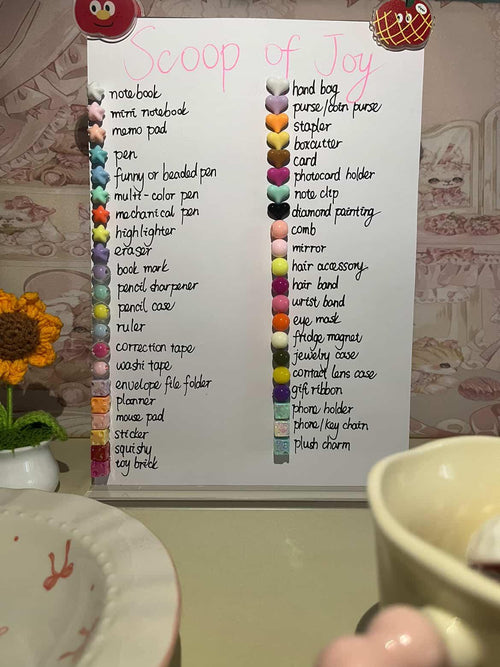 Scoop of Joy
notebook
mini notebook
memo pad
pen
funny or beaded pen
multi-color pen
mechanical pen
highlighter
eraser
book mark
pencil sharpener
pencil case
ruler
correction tape
washi tape
envelope file folder
planner
mouse pad
sticker
squishy
toy brick
hand bag
purse/coin purse
stapler
boxcutter
card
photocard holder
note clip
diamond painting
comb
mirror
hair accessory
hair band
wrist band
eye mask
fridge magnet
jewelry case
contact lens case
gift ribbon
phone holder
phone/key chain
plush charm